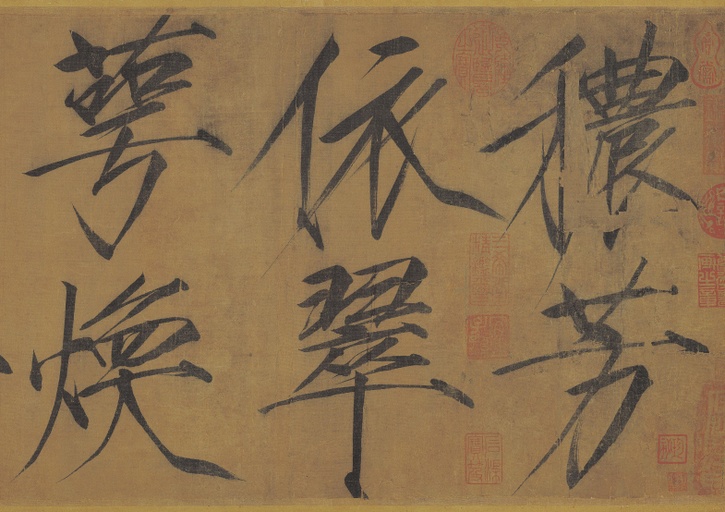 穠芳
依翠
萼焕